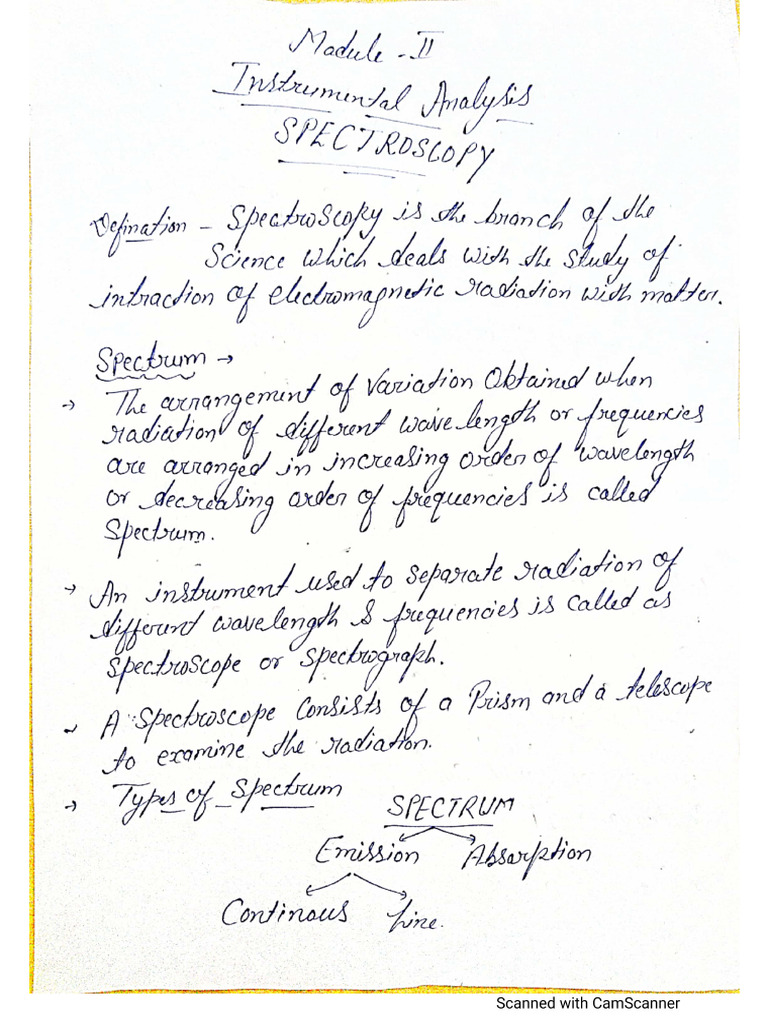 Module - II
Instrumental Analysis
SPECTROSCOPY
Defination - Spectroscopy is the branch of the
Science which deals with the study of
intraction of electromagnetic radiation with matter.
Spectrum →
→ The arrangement of Variation Obtained when
radiation of different wave length or frequencies
are arranged in increasing order of wavelength
or decreasing order of frequencies is called
Spectrum.
→ An instrument used to separate radiation of
different wavelength & frequencies is called as
spectroscope or spectrograph.
→ A Spectroscope Consists of a Prism and a telescope
to examine the radiation.
→ Types of Spectrum
SPECTRUM
Emission Absorption
Continous Line.
Scanned with CamScanner